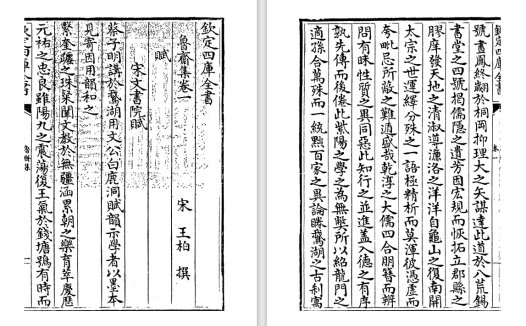 欽定四庫全書
魯齋集卷一
宋 王柏 撰
賦
宋文書院賦
蔡子明講於鵞湖用文公白鹿洞賦韻示學者以墨本
見寄因用韻和之
繄奎纏之珠采闡文教於無疆涵累朝之樂育萃慶歷
元祐之忠良雖陽九之震蕩復王氣於錢塘鴞有時而
號晝鳳終翽於桐岡抑理大之矢謀達此道於八荒錫
書堂之四號揭儒隱之遺芳因宏規而恢拓立郡縣之
膠庠發天地之清淑導濂洛之洋洋自龜山之復南開
太宗之世運繹分殊之一語極精析而莫渾彼憑虛而
夸毗忌所蔽之難遁盛哉乾淳之大儒四合朋簪而辯
問有昧性質之異同惡此知行之並進蓋入德之有序
孰先傳而後倦此紫陽之學之為無弊所以紹龍門之
適孫合萬殊而一統黜百家之異論睠鵞湖之古刹寓